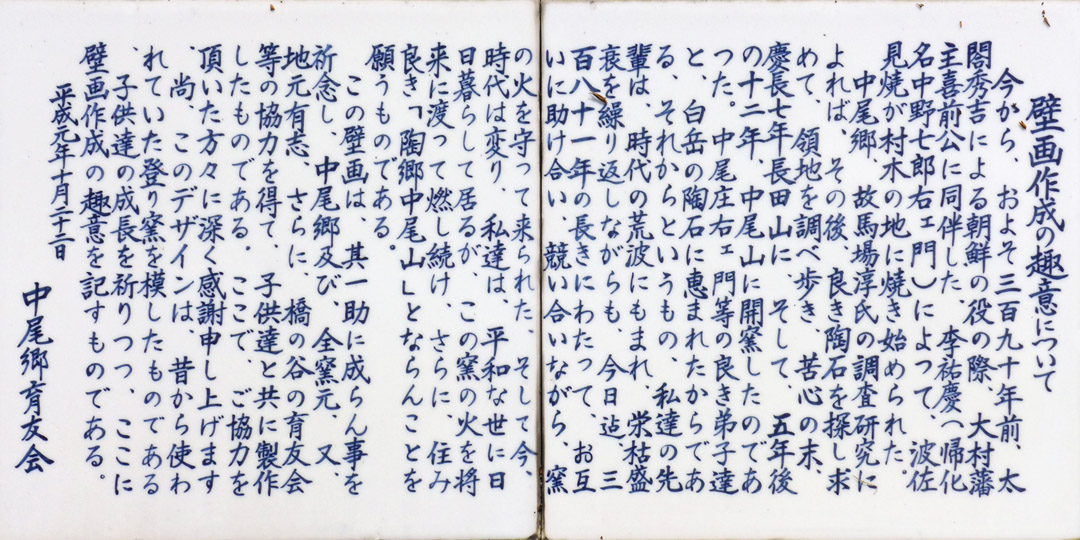 壁画作成の趣意について
今から、およそ三百九十年前、太
閤秀吉による朝鮮の役の際、大村藩
主喜前公に同伴した、李祐慶(帰化
名中野七郎右ェ門)によって、波佐
見焼が村木の地に焼き始められた。
中尾郷、故馬場淳氏の調査研究に
よれば、その後、良き陶石を探し求
めて、領地を調べ歩き、苦心の末、
慶長七年長田山に、そして、五年後
の十二年、中尾山に開窯したのであ
った。中尾庄右ェ門等の良き弟子達
と、白岳の陶石に恵まれたからであ
る、それからというもの、私達の先
輩は、時代の荒波にもまれ、栄枯盛
衰を繰り返しながらも、今日迠、三
百八十一年の長きにわたって、お互
いに助け合い、競い合いながら、窯
の火を守って来られた、そして今、
時代は変り、私達は、平和な世に日
日暮らして居るが、この窯の火を将
来に渡って燃し続け、さらに、住み
良き「陶郷中尾山」とならんことを
願うものである。
この壁画は、其一助に成らん事を
祈念し、中尾郷及び、全窯元、又、
地元有志、さらに、橋の谷の育友会
等の協力を得て、子供達と共に製作
したものである。ここで、ご協力を
頂いた方々に深く感謝申し上げます
、尚、このデザインは、昔から使わ
れていた登り窯を模したものである
、子供達の成長を祈りつつ、ここに
壁画作成の趣意を記すものである。
平成元年十月二十二日
中尾郷育友会